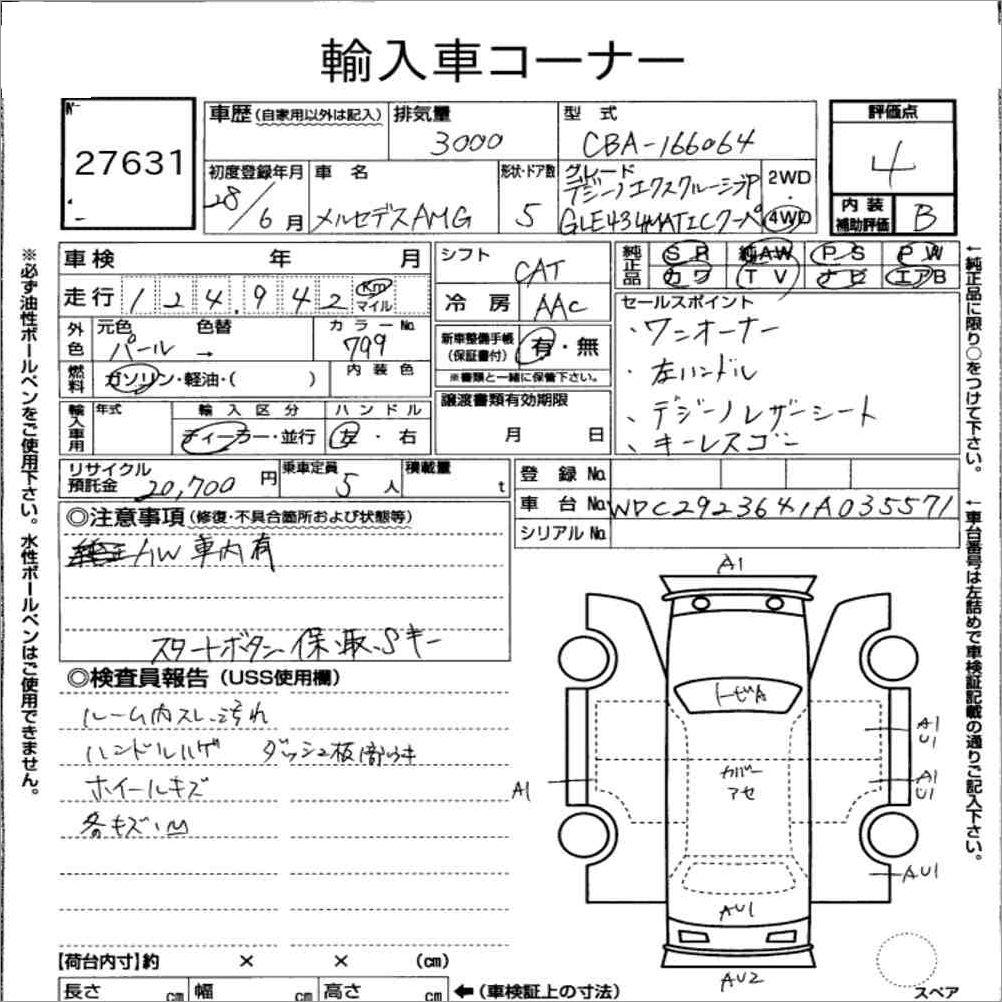 輸入車コーナー
27631
車歴(自家用以外は記入)
排気量
3000
型式
CBA-166064
評価点
4
初度登録年月
28/6月
車名
メルセデスAMG
形状・ドア数
5
グレード
デジーノエクスクルーシブP
GLE434MATICクーペ
2WD
4WD
内装補助評価
B
車検 年 月
走行 124,942 Km マイル
シフト
CAT
冷房
AAC
純正品
SR 純AW PS PW
カワ TV ナビ エアB
外色
元色 色替
パール →
カラーNo.
799
燃料
ガソリン・軽油・( )
内装色
新車整備手帳(保証書付)
有・無
※書類と一緒に保管下さい。
セールスポイント
・ワンオーナー
・左ハンドル
・デジーノレザーシート
・キーレスゴー
輸入車用
年式
輸入区分
ディーラー・並行
ハンドル
左・右
譲渡書類有効期限
月 日
リサイクル預託金
20,700円
乗車定員
5人
積載量
t
登録No.
車台No.
WDC2923641A035571
シリアルNo.
◎注意事項(修復・不具合箇所および状態等)
AW 車内有
スタートボタン 保・取、Sキー
◎検査員報告(USS使用欄)
ルーム内スレ、汚れ
ハンドルハゲ ダッシュ板
ホイールキズ
各キズ、凹
【荷台内寸】約 × × (cm)
長さ cm 幅 cm 高さ cm ←(車検証上の寸法)
A1
トビA
カバー
アセ
A1
A1
U1
A1
U1
AU1
AU1
AU2
スペア
※必ず油性ボールペンをご使用下さい。水性ボールペンはご使用できません。
←純正品に限り○をつけて下さい。
←車台番号は左詰めで車検証記載の通りご記入下さい。